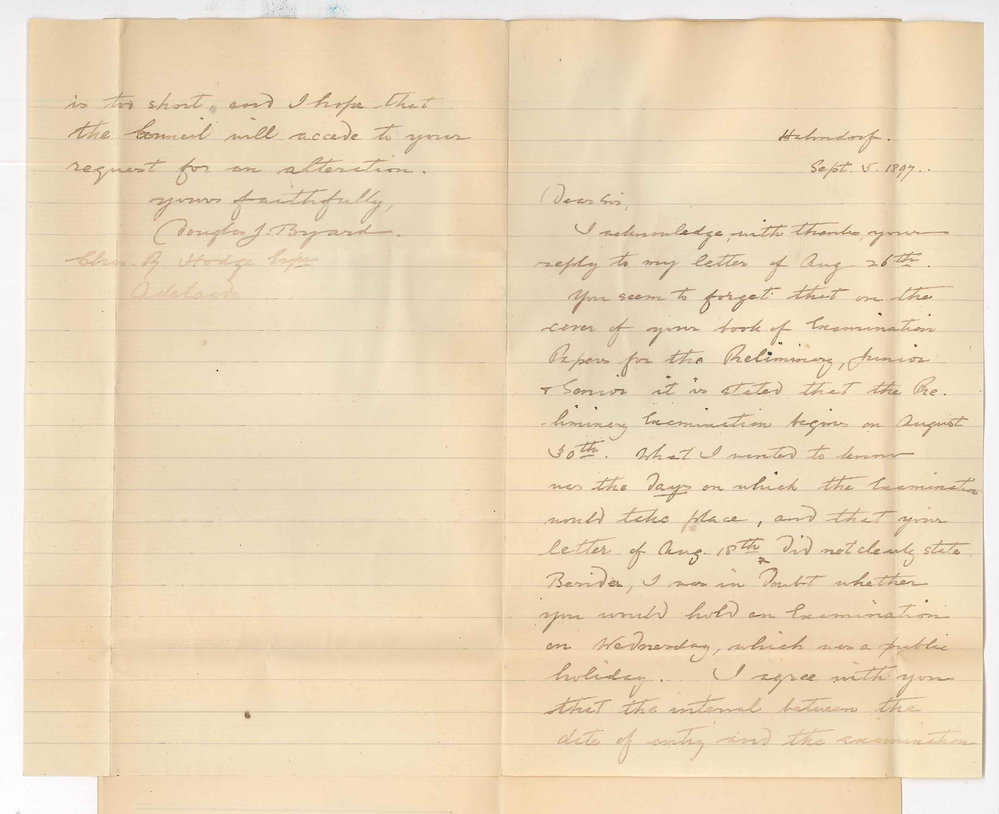 Hahndorf.
Sept. 5. 1897.
Dear Sir,
I acknowledge, with thanks, your
reply to my letter of Aug 26th.
You seem to forget that on the
cover of your book of Examination
Papers for the Preliminary, Junior
& Senior it is stated that the Pre-
liminary Examination begins on August
30th. What I wanted to know
was the days on which the Examination
would take place, and that your
letter of Aug. 18th did not clearly state.
Besides, I was in doubt whether
you would hold an Examination
on Wednesday, which was a public
holiday. I agree with you
that the interval between the
date of entry and the examination
is too short, and I hope that
the Council will accede to your
request for an alteration.
Yours faithfully,
Douglas J. Byard.
Chas. R. Hodge Esqre
Adelaide